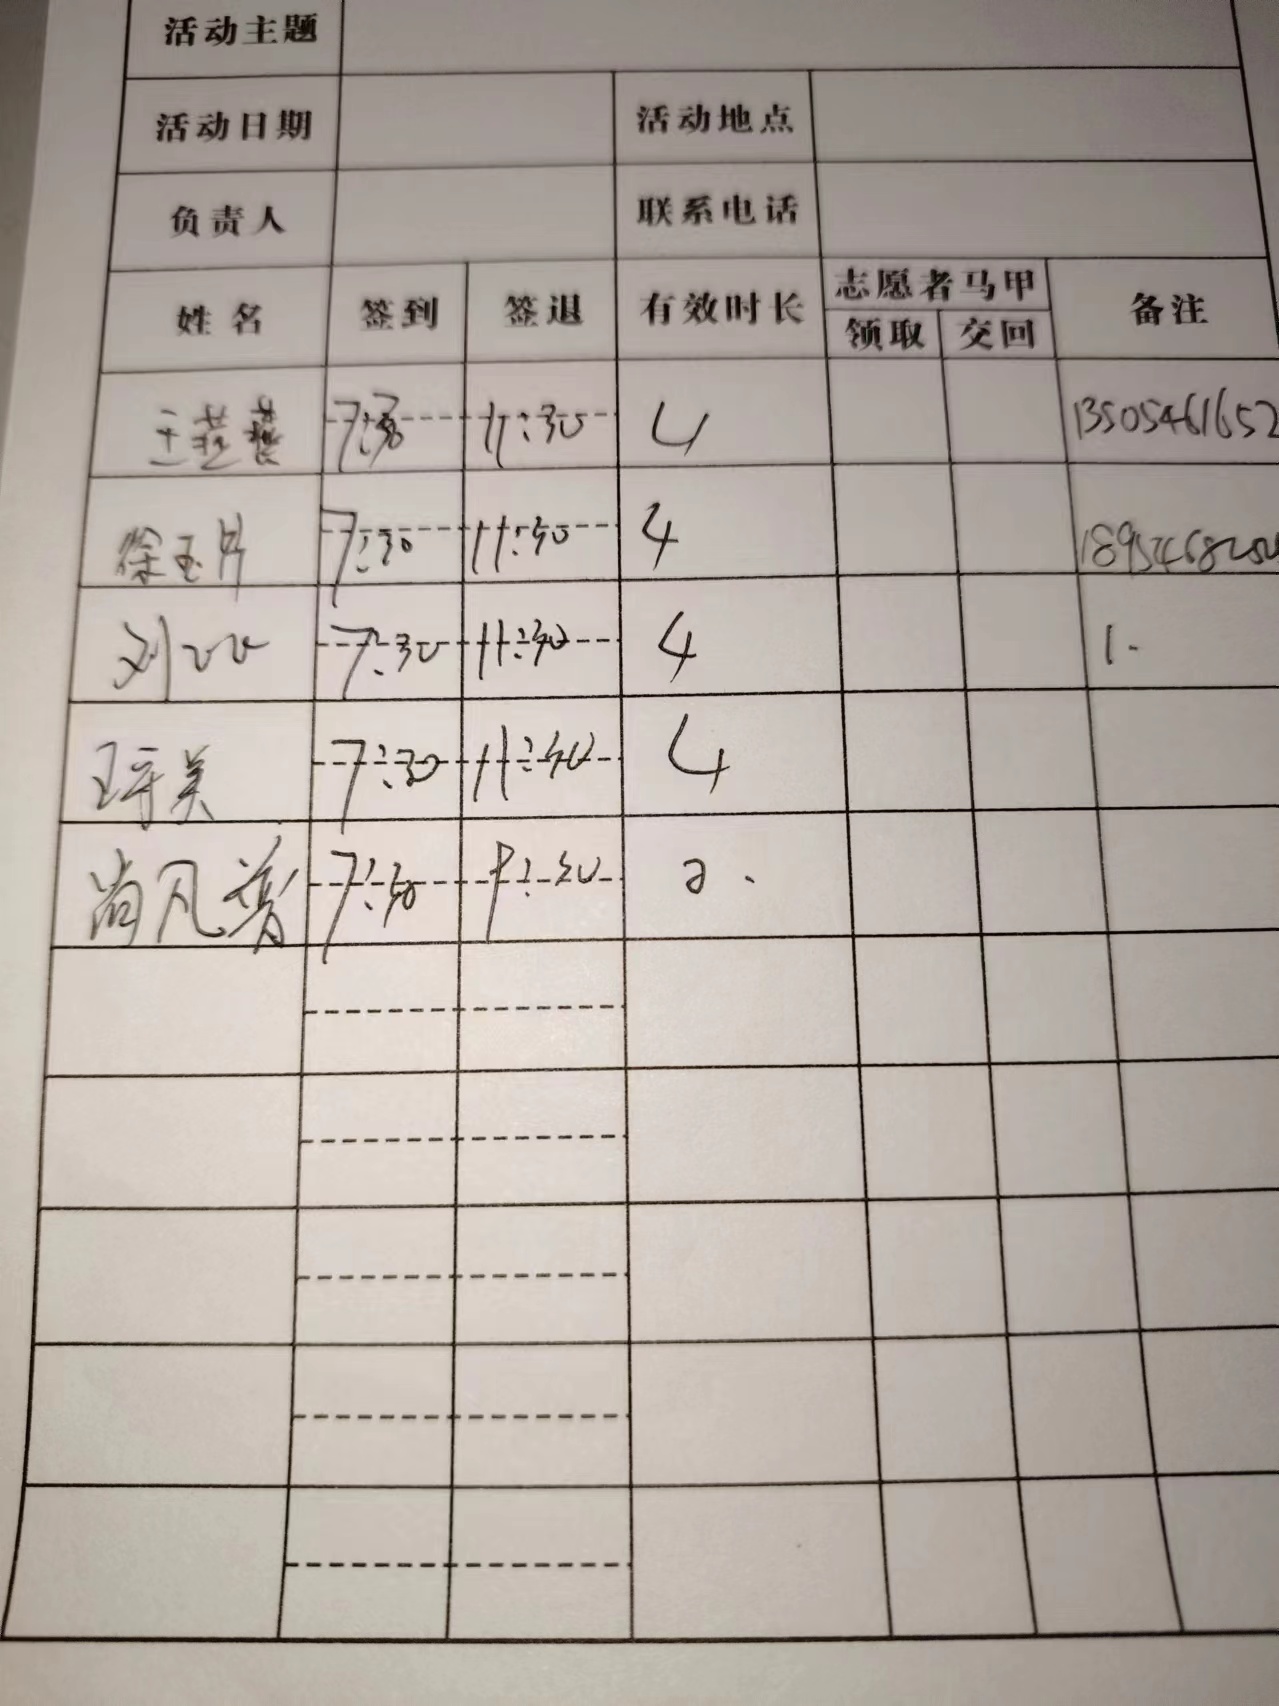 活动主题
活动日期 活动地点
负责人 联系电话
姓名 签到 签退 有效时长 志愿者马甲 备注
领取 交回
王 7:30 11:30 4 13505461652
徐玉 7:30 11:30 4
刘 7:30 11:30 4 1.
王 美 7:30 11:30 4
尚凡 7:30 9:30 2.